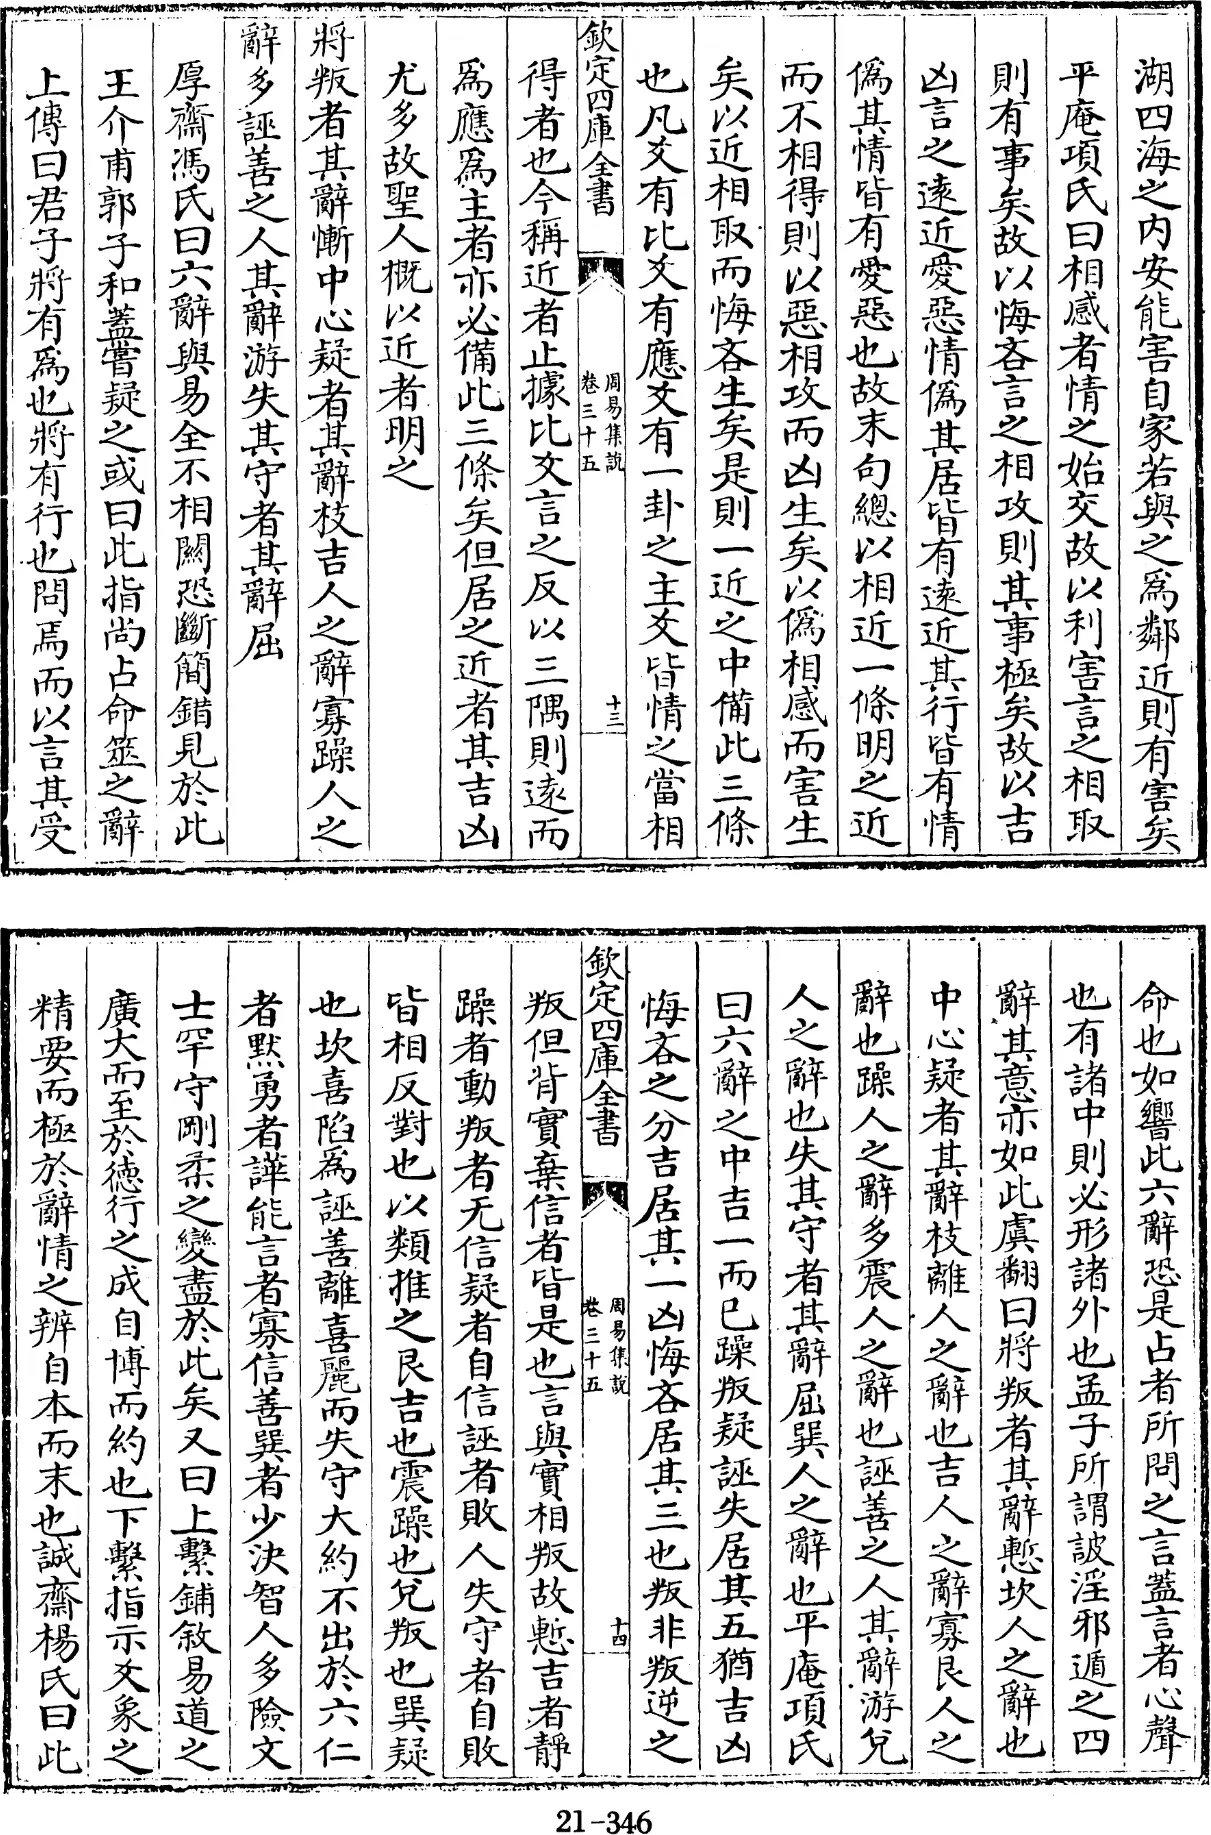 湖四海之内安能害自家若與之爲鄰近則有害矣
平庵項氏曰相感者情之始交故以利害言之相取
則有事矣故以悔吝言之相攻則其事極矣故以吉
凶言之逺近愛惡情偽其居皆有逺近其行皆有情
偽其情皆有愛惡也故末句總以相近一條明之近
而不相得則以惡相攻而凶生矣以偽相感而害生
矣以近相取而悔吝生矣是則一近之中備此三條
也凡爻有比爻有應爻有一卦之主爻皆情之當相
欽定四庫全書
周易集說
卷三十五
十三
得者也今稱近者止據比爻言之反以三隅則逺而
爲應爲主者亦必備此三條矣但居之近者其吉凶
尤多故聖人概以近者明之
將叛者其辭慚中心疑者其辭枝吉人之辭寡躁人之
辭多誣善之人其辭游失其守者其辭屈
厚齋馮氏曰六辭與易全不相關恐斷簡錯見於此
王介甫郭子和葢嘗疑之或曰此指尚占命筮之辭
上傳曰君子將有爲也將有行也問焉而以言其受
命也如響此六辭恐是占者所問之言葢言者心聲
也有諸中則必形諸外也孟子所謂詖淫邪遁之四
辭其意亦如此虞翻曰將叛者其辭慙坎人之辭也
中心疑者其辭枝離人之辭也吉人之辭寡艮人之
辭也躁人之辭多震人之辭也誣善之人其辭游兌
人之辭也失其守者其辭屈巽人之辭也平庵項氏
曰六辭之中吉一而已躁叛疑誣失居其五猶吉凶
悔吝之分吉居其一凶悔吝居其三也叛非叛逆之
欽定四庫全書
周易集說
卷三十五
十四
叛但背實棄信者皆是也言與實相叛故慙吉者靜
躁者動叛者无信疑者自信誣者敗人失守者自敗
皆相反對也以類推之艮吉也震躁也兌叛也巽疑
也坎喜陷爲誣善離喜麗而失守大約不出於六仁
者默勇者譁能言者寡信善巽者少決智人多險文
士罕守剛柔之變盡於此矣又曰上繫鋪敘易道之
廣大而至於德行之成自博而約也下繫指示爻象之
精要而極於辭情之辨自本而末也誠齋楊氏曰此
21-346